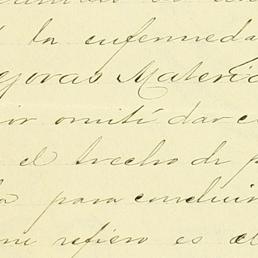 la enfermeda
joras Materia
or omití dar c
el trecho de p
para conclui
me refiero es el